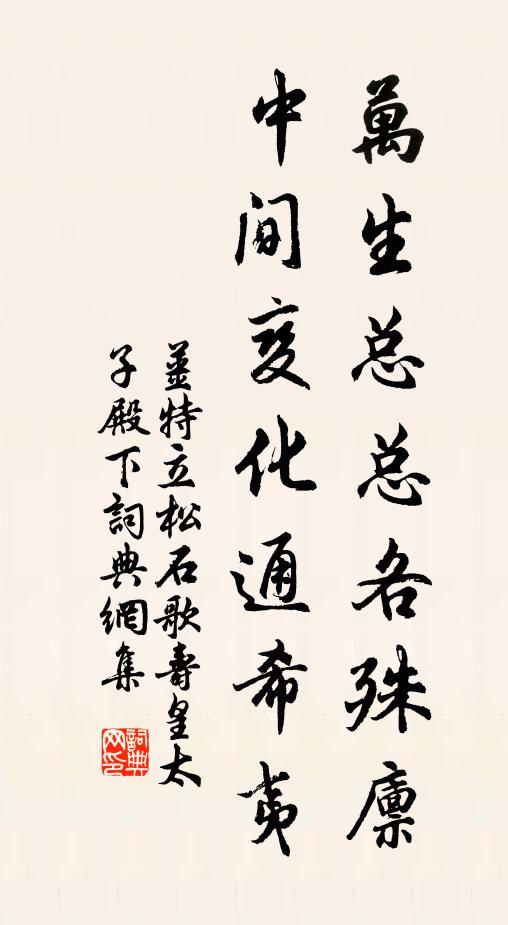 萬生总总各殊廪
中间变化通希夷
薑特立松石歌壽皇太
子殿下詞典網集
詞典网印